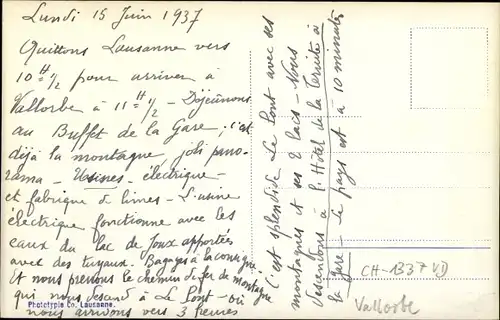 Lundi 15 Juin 1937
Quittons Lausanne vers
10 H 1/2 pour arriver à
Vallorbe à 11 H 1/2 - Déjeûnons
au Buffet de la Gare ; c'est
déjà la montagne, joli pano-
rama - Usines - électrique -
et fabrique de limes - L'usine
électrique fonctionne avec les
eaux du lac de Joux apportées
avec des tuyaux. Bagages à la consigne
et nous prenons le chemin de fer de montagne
qui nous descend à Le Pont - où
nous arrivons vers 3 heures
Phototypie Co. Lausanne.
c'est splendide Le Pont avec ses
montagnes et ses 2 lacs - Nous
descendons à l'Hôtel de la Truite à
la gare - le pays est à 10 minutes
CH-1337 VD
Vallorbe